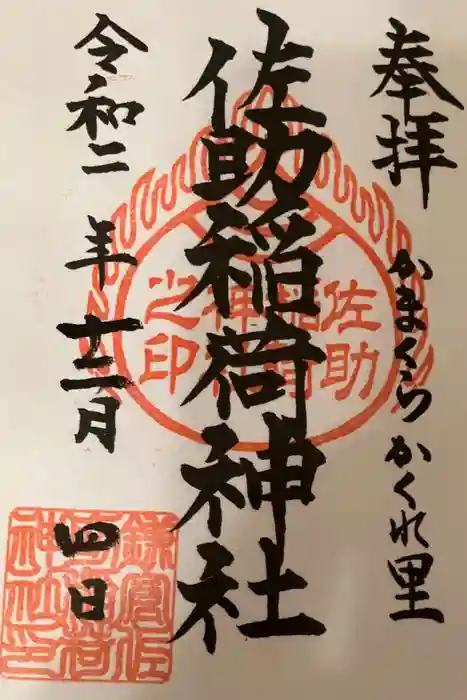 奉拝
かまくらかくれ里
佐助稲荷神社
令和二年十二月四日
佐助
稲荷
神社
之印